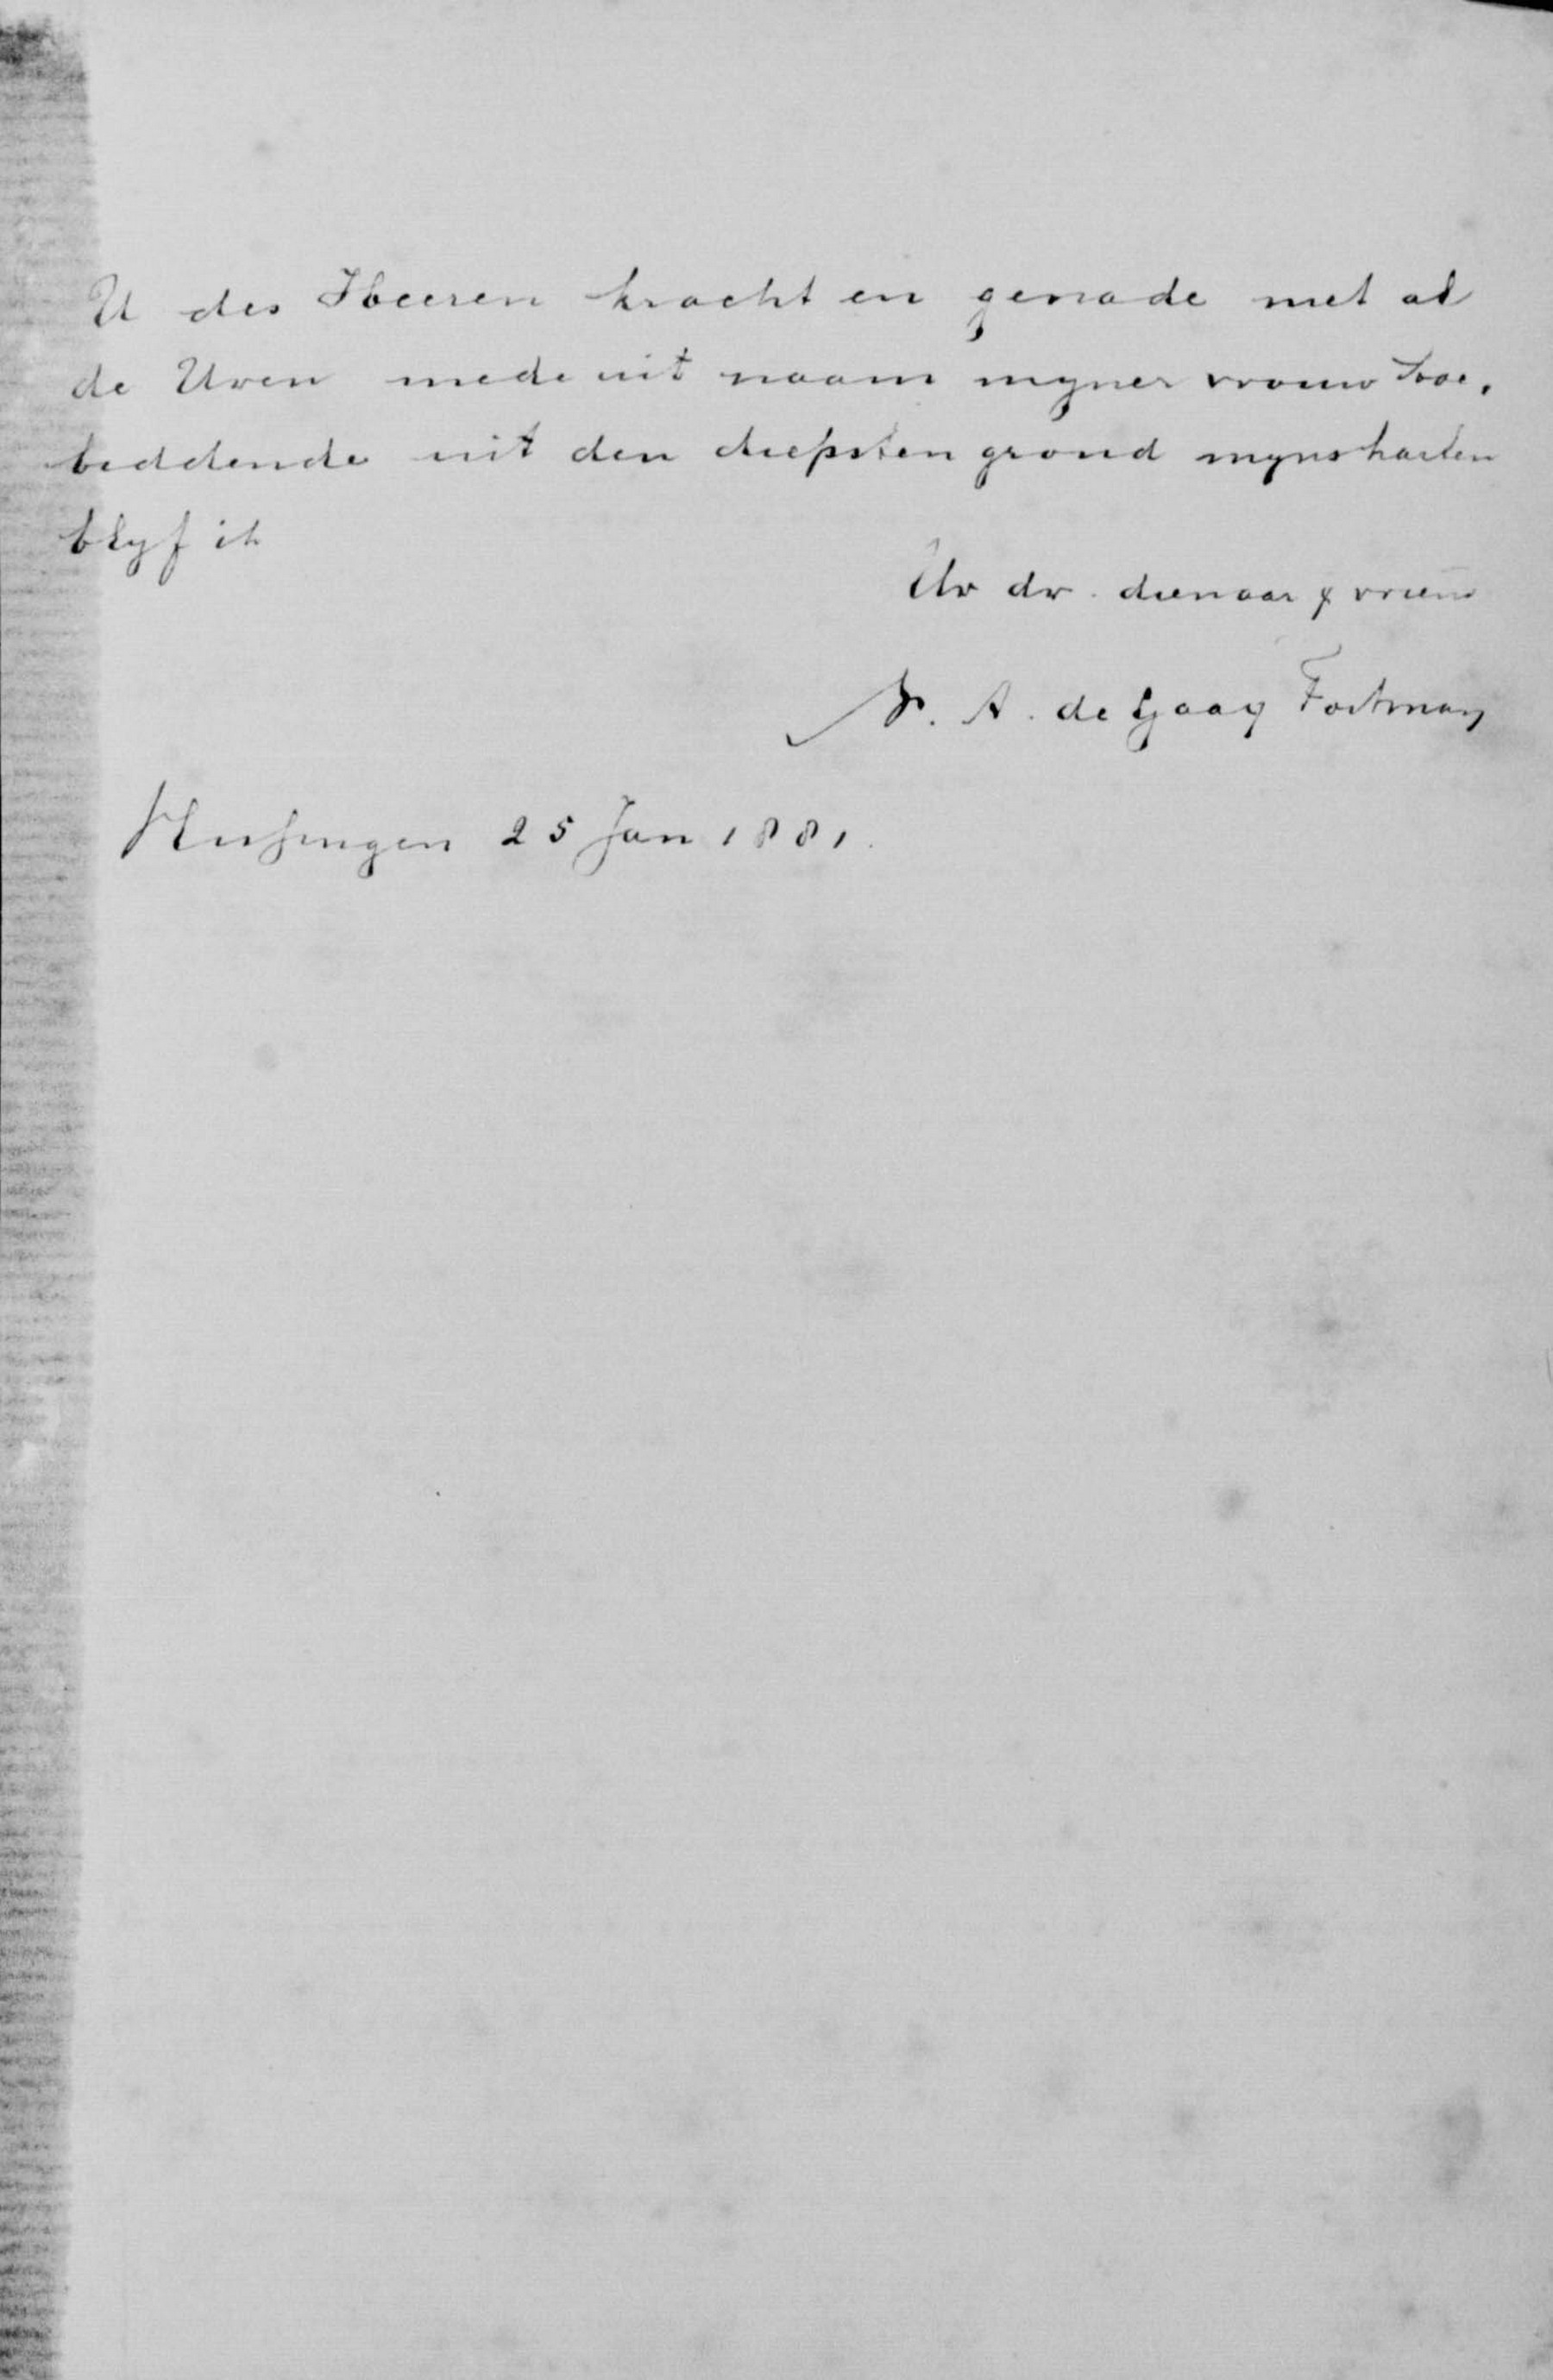 U des Heeren kracht en genade met al
de Uwen mede uit naam myner vrouw toe,
biddende uit den diepsten grond myns harten
blyf ik
Uw dw. dienaar & vriend
N. A. de Gaay Fortman
Vlissingen 25 Jan 1881.